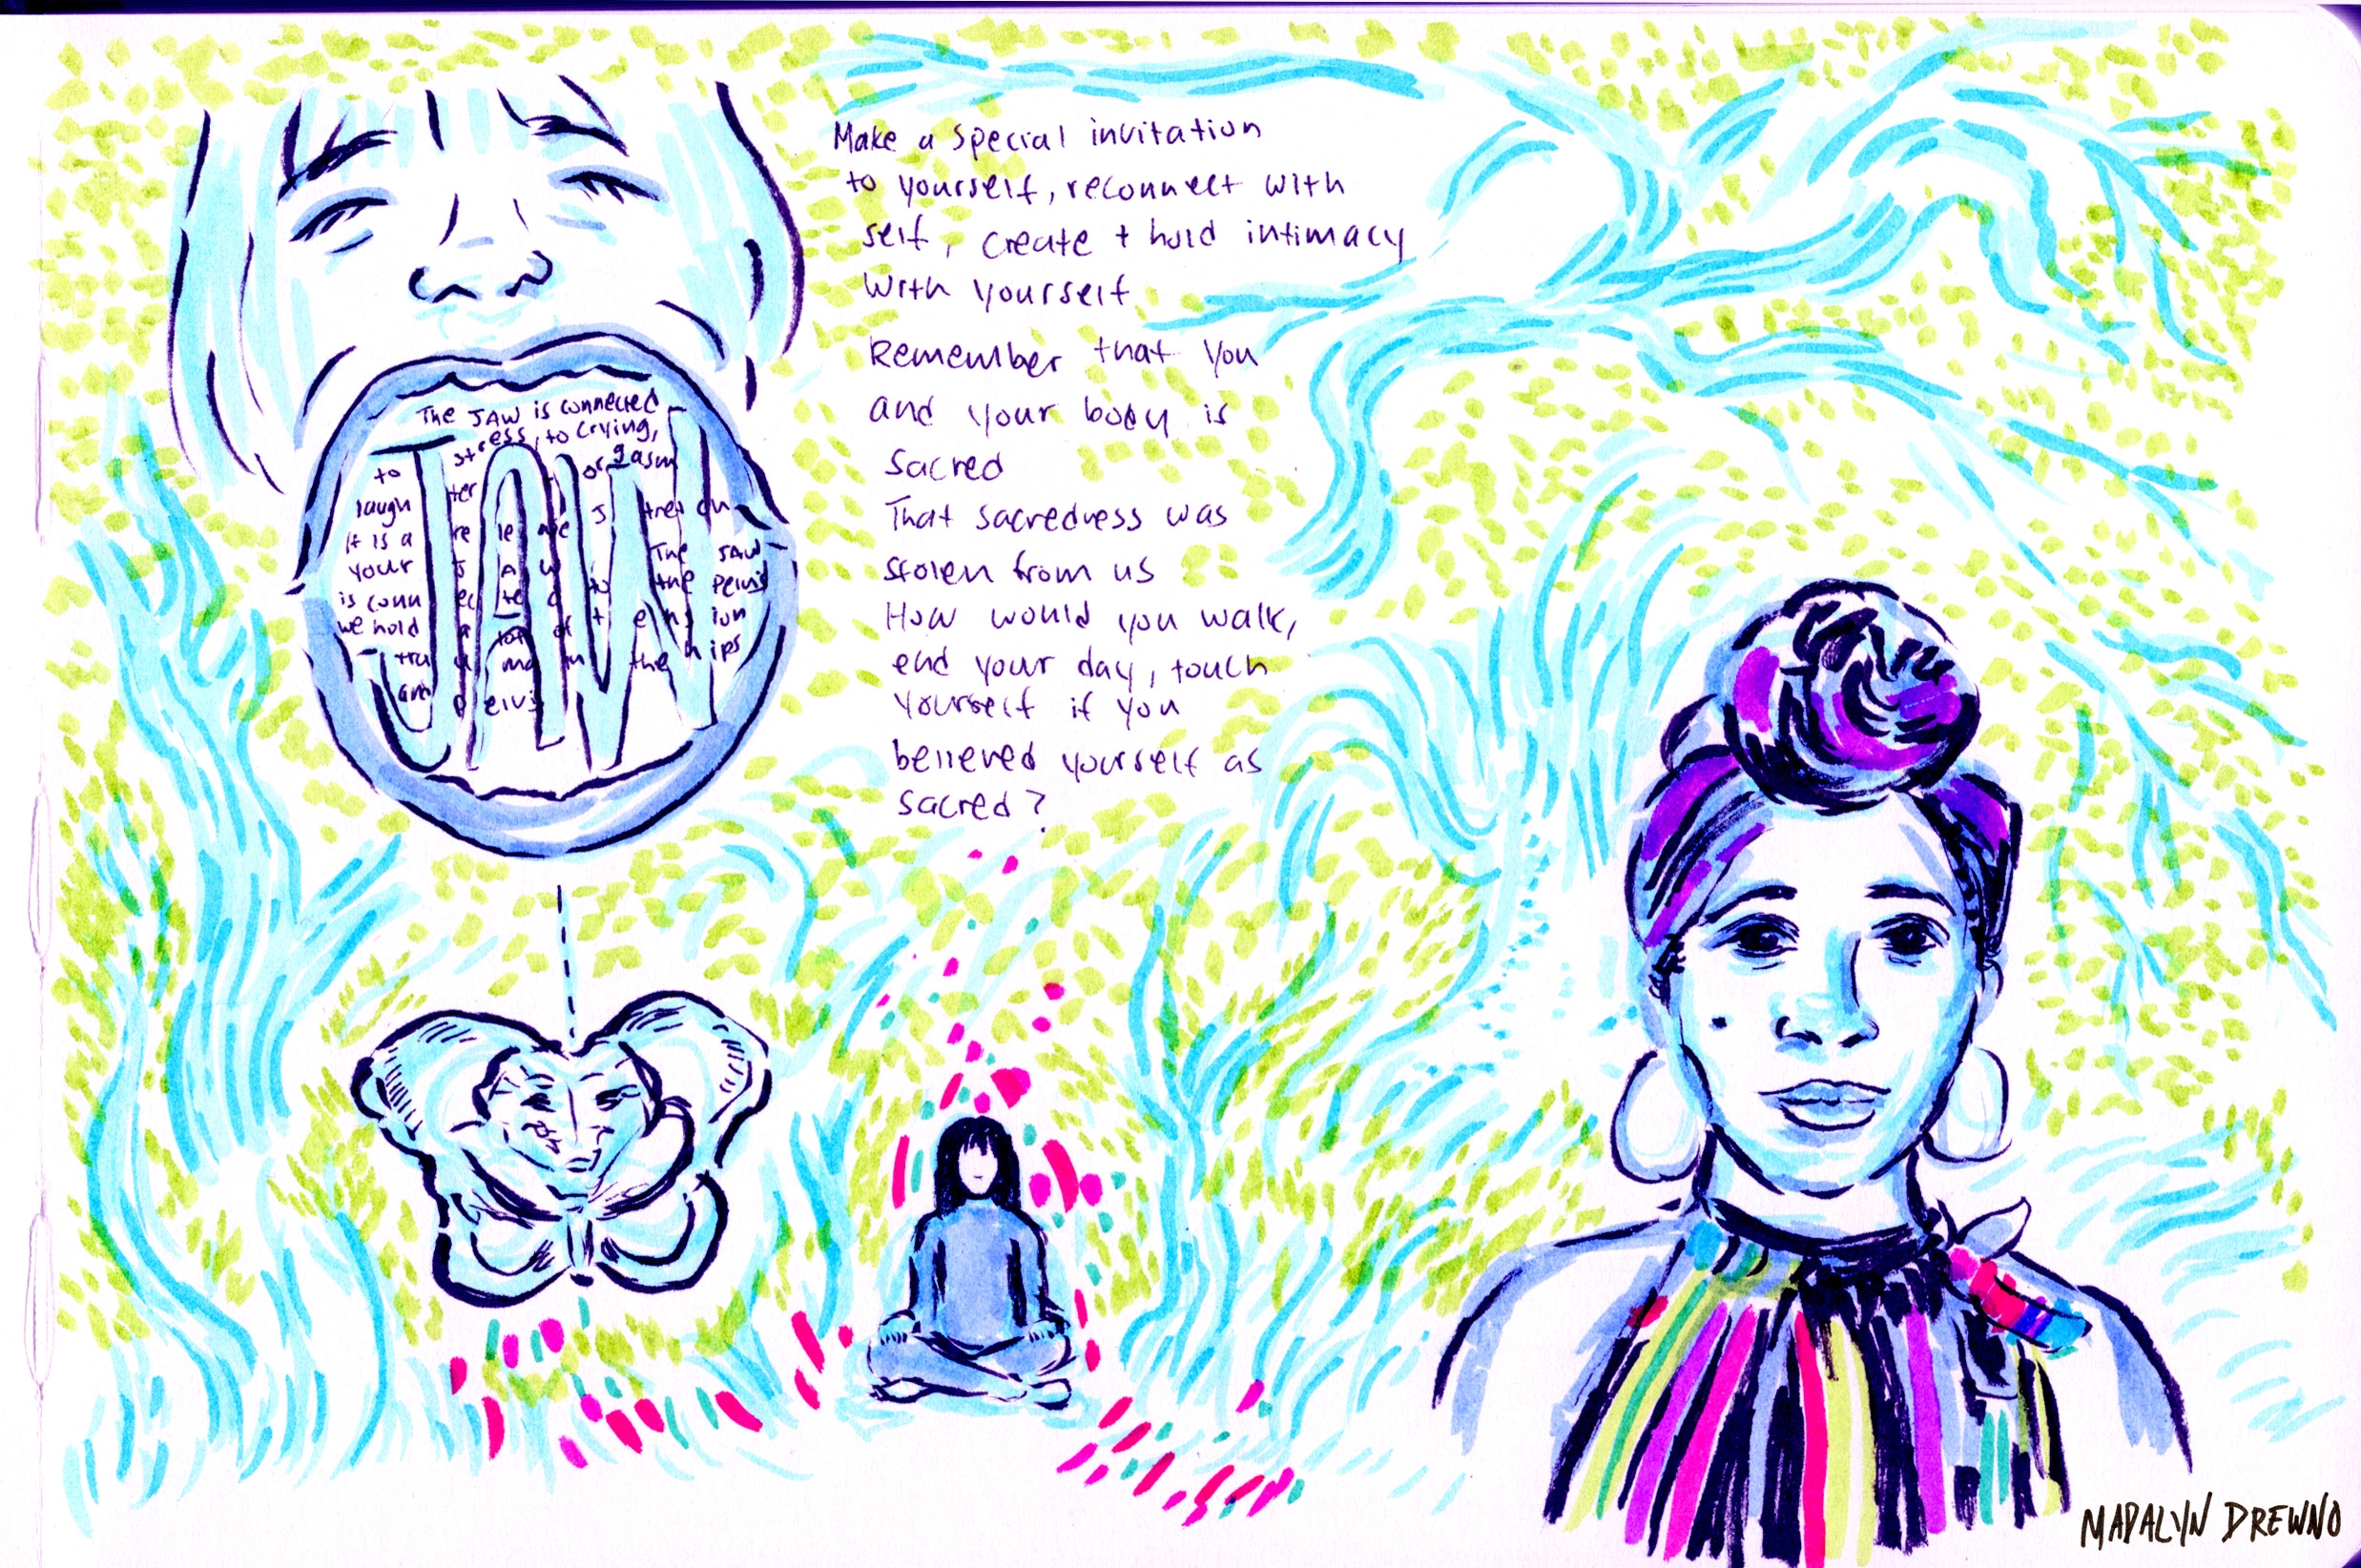 Make a special invitation
to yourself, reconnect with
self, create + hold intimacy
with yourself
Remember that you
and your body is
sacred
That sacredness was
stolen from us
How would you walk,
end your day, touch
yourself if you
believed yourself as
sacred?
The JAW is connected
to stress, to crying,
laughter orgasm
It is a release
your JAW to The JAW
is connected to the pelvis
we hold a lot of tension
trauma in the hips
and pelvis
JAW
MADALYN DREWNO